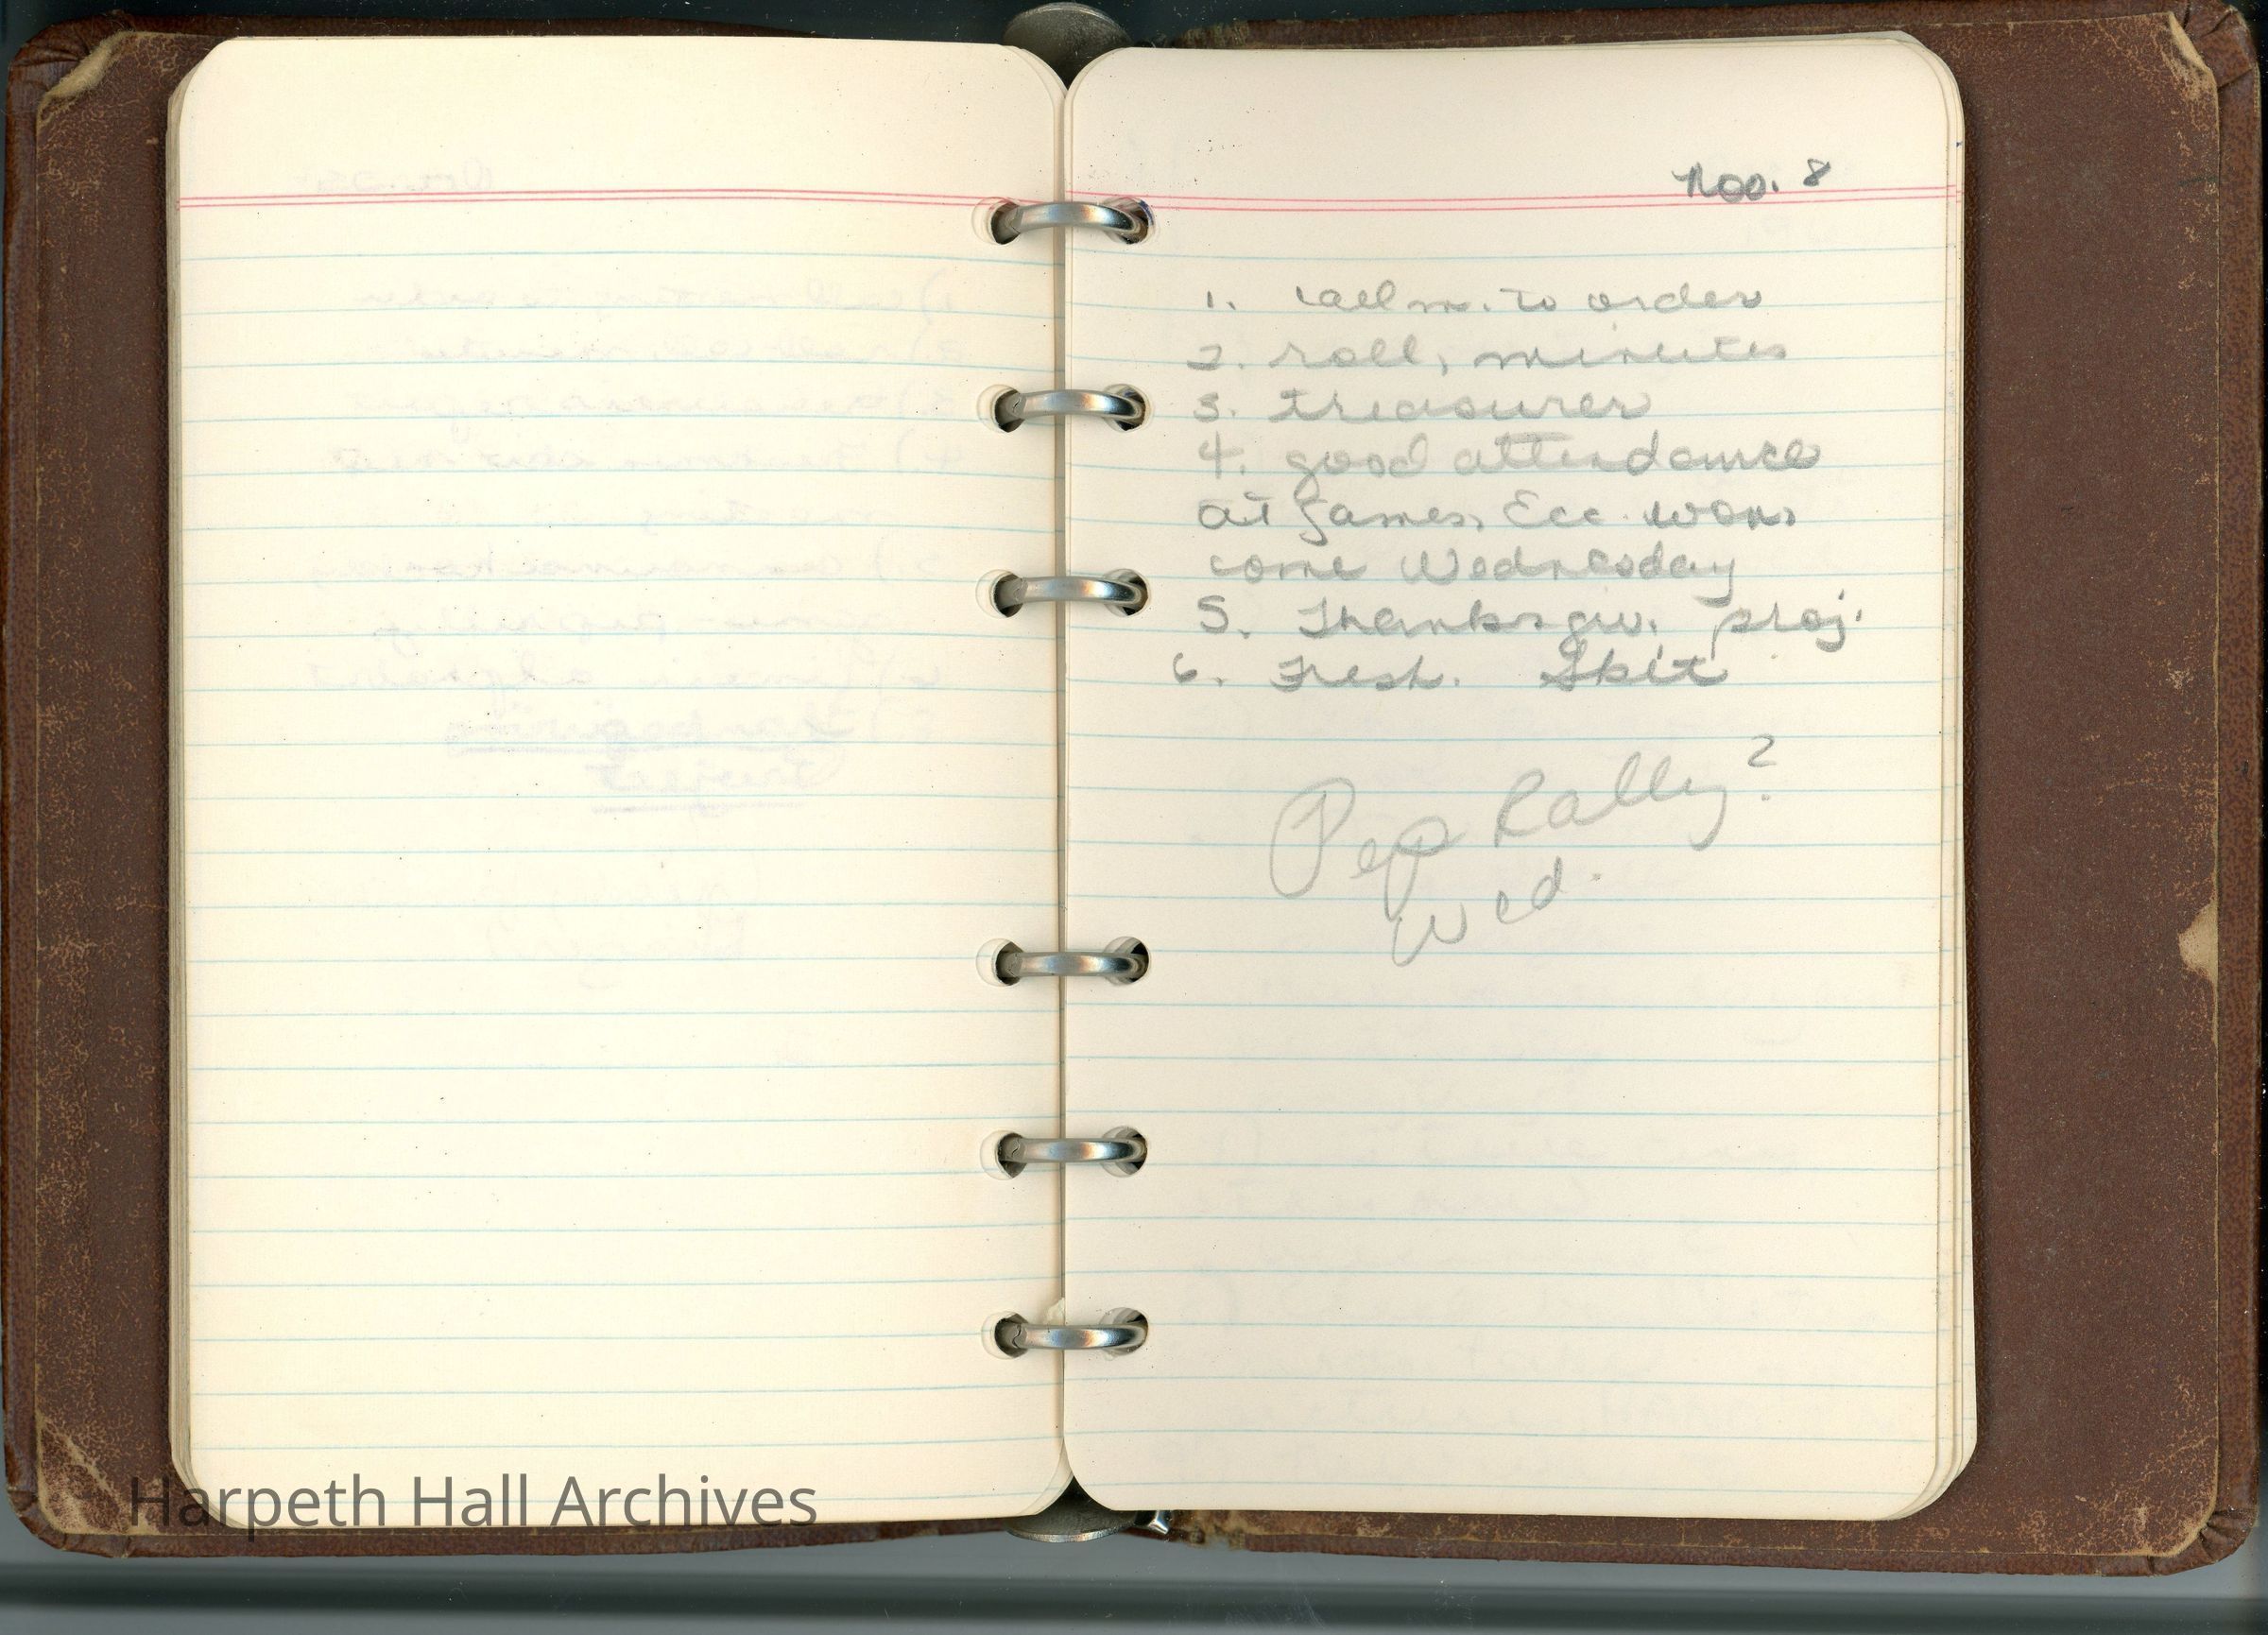 Nov. 8
1. call m. to order
2. roll, minutes
3. treasurer
4. good attendance
at games. Ecc. won,
come Wednesday
5. Thanksgiv. proj.
6. Fresh. Skit
Pep Rally?
Wed.
Harpeth Hall Archives